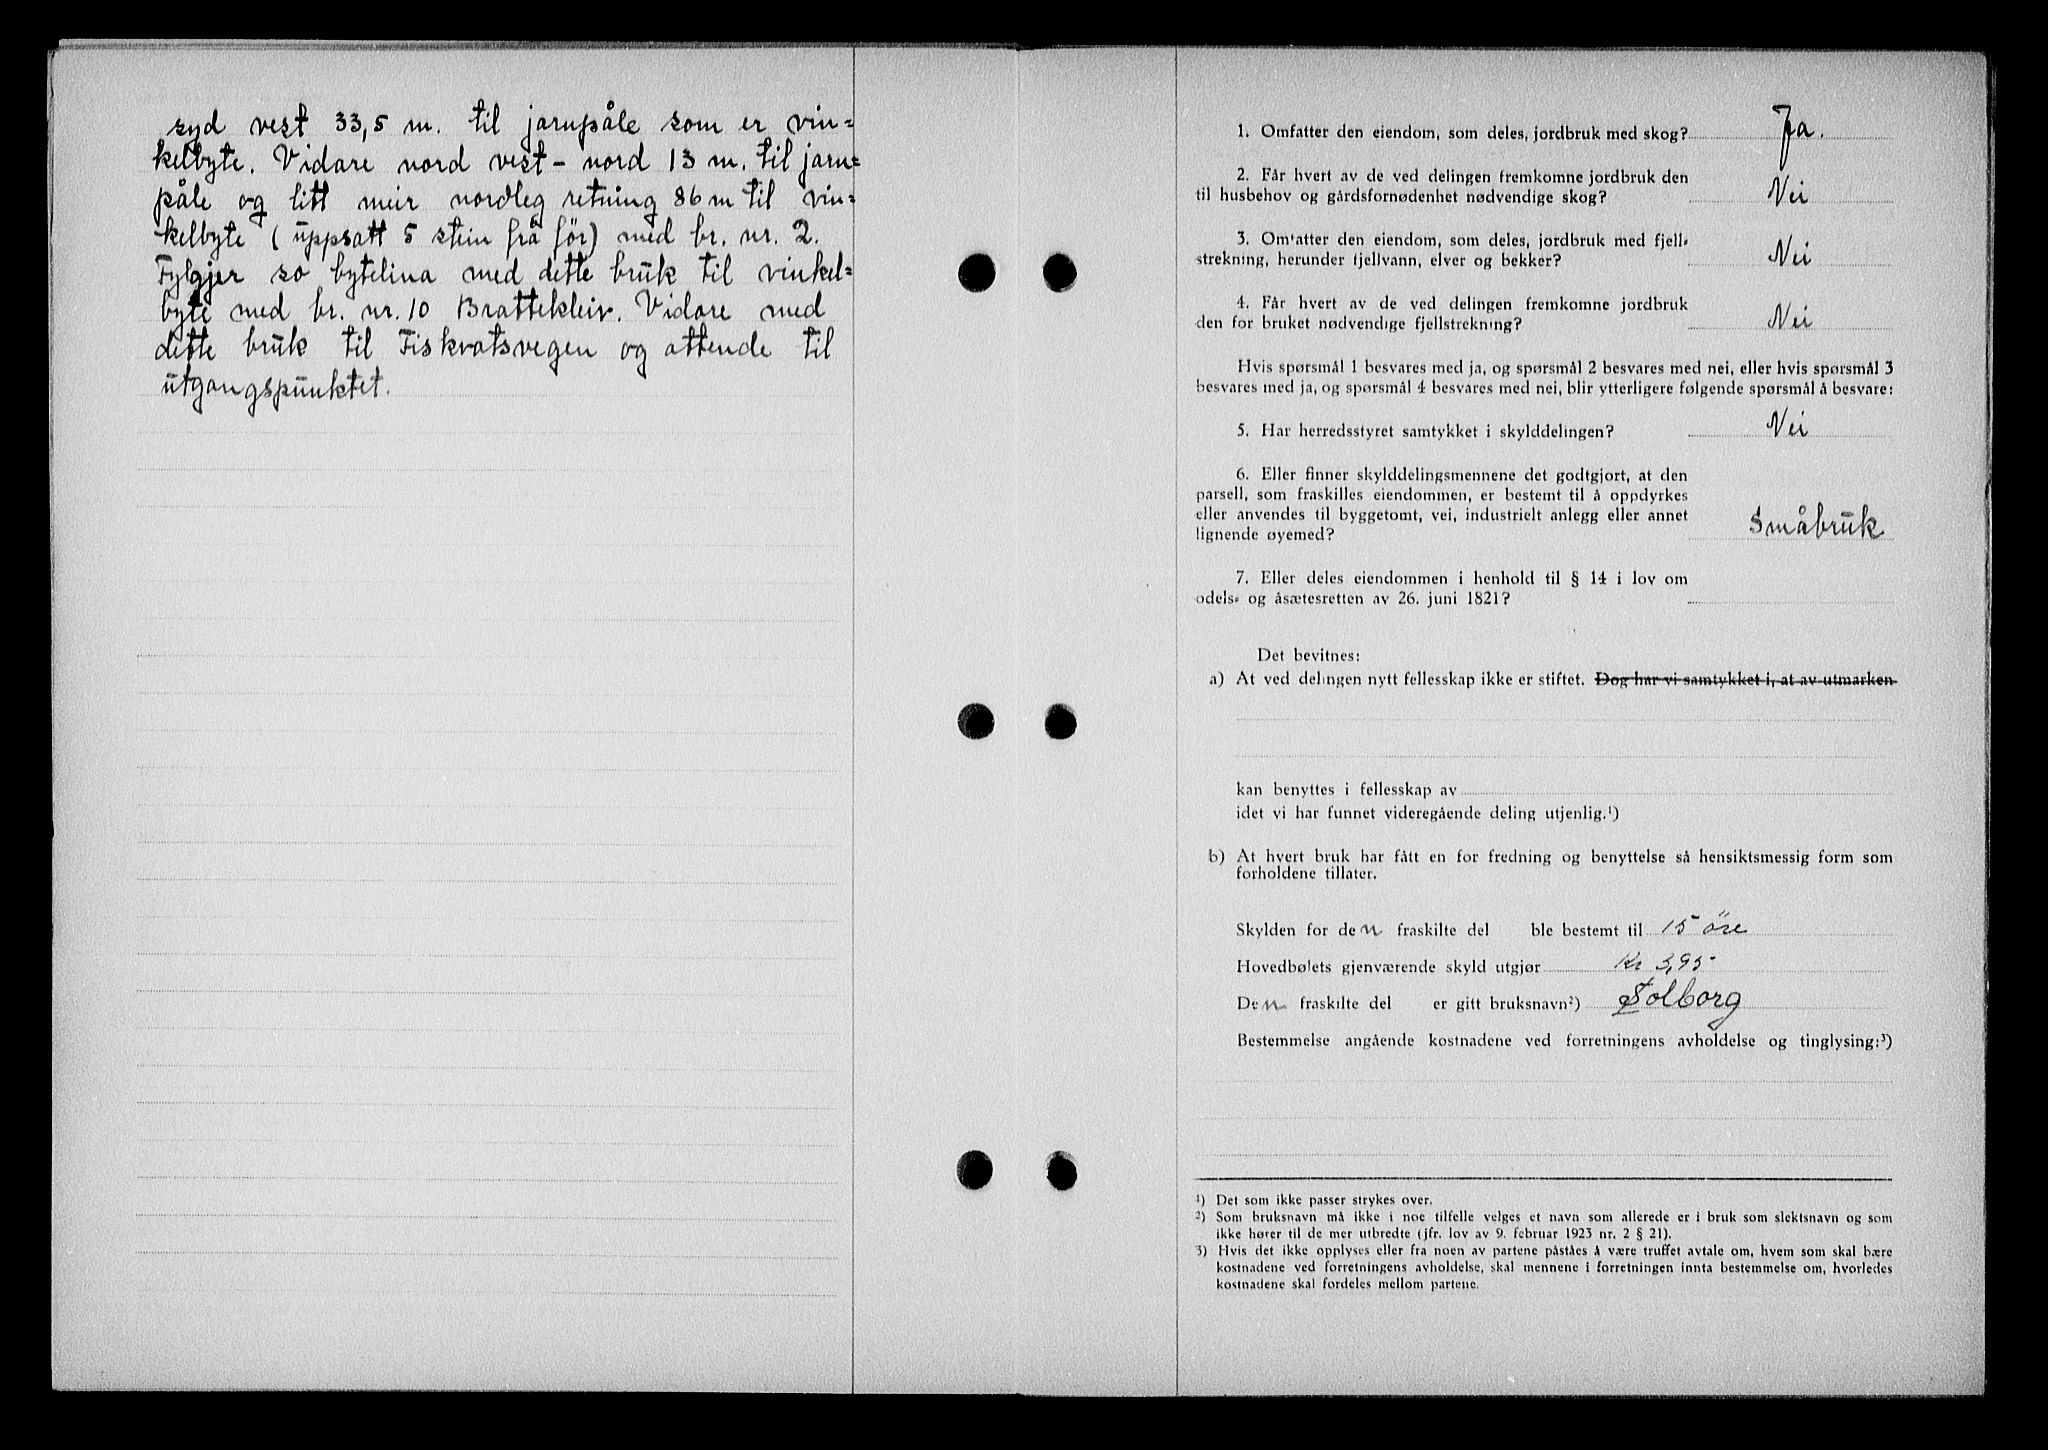 syd vest 33,5 m. til jarnpåle som er vin=
kelbyte. Vidare nord vest – nord 13 m. til jarn=
påle og litt meir nordleg retning 86 m til vin=
kelbyte (uppsatt 5 stein frå før) med br. nr. 2.
Fylgjer so bytelina med dette bruk til vinkel=
byte med br. nr. 10 Brattekleiv. Vidare med
dette bruk til Fiskvatsvegen og attende til
utgangspunktet.
1. Omfatter den eiendom, som deles, jordbruk med skog? Ja.
2. Får hvert av de ved delingen fremkomne jordbruk den
til husbehov og gårdsfornødenhet nødvendige skog? Nei
3. Omfatter den eiendom, som deles, jordbruk med fjell-
strekning, herunder fjellvann, elver og bekker? Nei
4. Får hvert av de ved delingen fremkomne jordbruk
den for bruket nødvendige fjellstrekning? Nei
Hvis spørsmål 1 besvares med ja, og spørsmål 2 besvares med nei, eller hvis spørsmål 3
besvares med ja, og spørsmål 4 besvares med nei, blir ytterligere følgende spørsmål å besvare:
5. Har herredsstyret samtykket i skylddelingen? Nei
6. Eller finner skylddelingsmennene det godtgjort, at den
parsell, som fraskilles eiendommen, er bestemt til å oppdyrkes
eller anvendes til byggetomt, vei, industrielt anlegg eller annet
lignende øyemed? Småbruk
7. Eller deles eiendommen i henhold til § 14 i lov om
odels- og åsætesretten av 26. juni 1821?
Det bevitnes:
a) At ved delingen nytt fellesskap ikke er stiftet. Dog har vi samtykket i, at av utmarken
kan benyttes i fellesskap av
idet vi har funnet videregående deling utjenlig.¹)
b) At hvert bruk har fått en for fredning og benyttelse så hensiktsmessig form som
forholdene tillater.
Skylden for den fraskilte del ble bestemt til 15 öre
Hovedbølets gjenværende skyld utgjør Kr 3,95
Den fraskilte del er gitt bruksnavn²) Solborg
Bestemmelse angående kostnadene ved forretningens avholdelse og tinglysing:³)
¹) Det som ikke passer strykes over.
²) Som bruksnavn må ikke i noe tilfelle velges et navn som allerede er i bruk som slektsnavn og som
ikke hører til de mer utbredte (jfr. lov av 9. februar 1923 nr. 2 § 21).
3) Hvis det ikke opplyses eller fra noen av partene påståes å være truffet avtale om, hvem som skal bære
kostnadene ved forretningens avholdelse, skal mennene i forretningen innta bestemmelse om, hvorledes
kostnadene skal fordeles mellom partene.